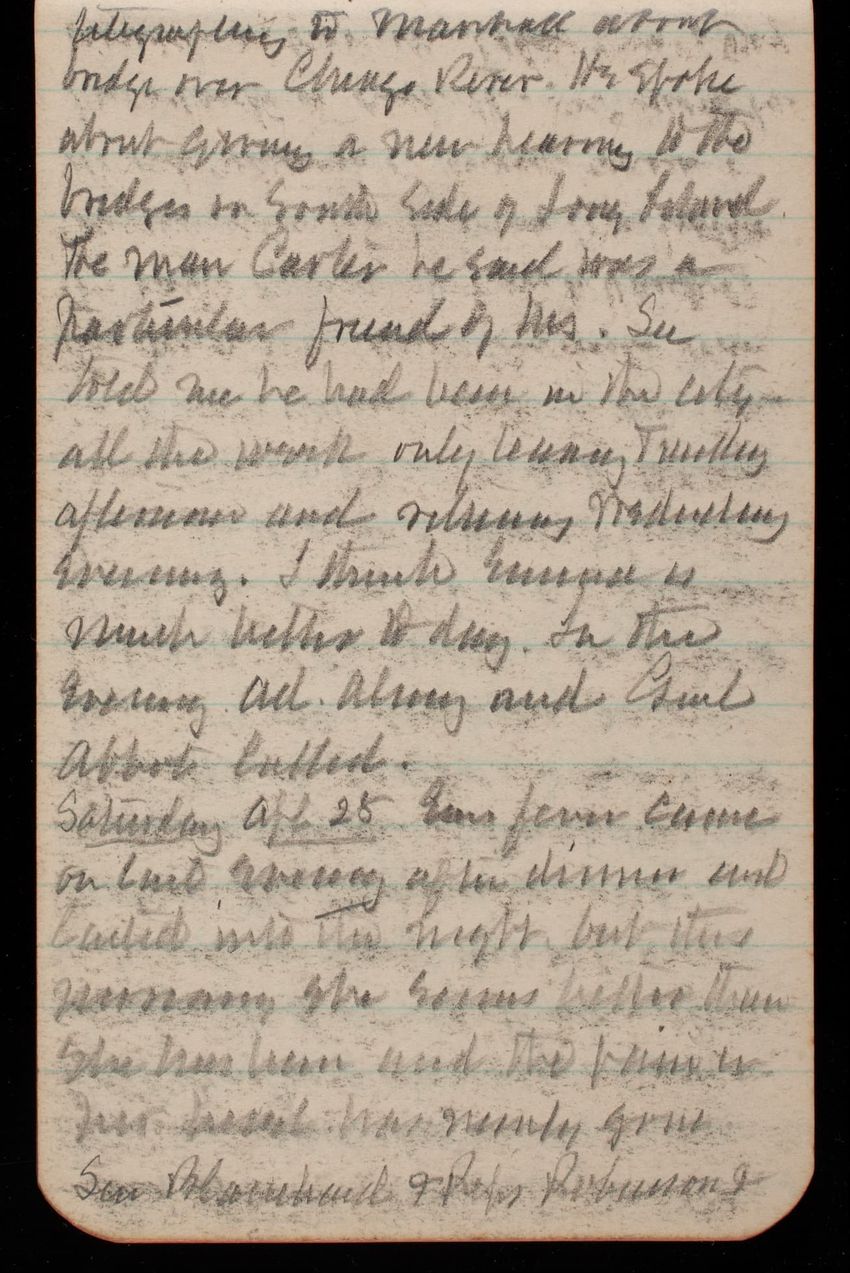 telegraphing W. Marshall about
bridge over Chicago River. He spoke
about giving a new hearing to the
bridges on South Side of Long Island.
The man Carter he said was a
particular friend of his. Sec
told me he had been in the city
all the week only leaving Tuesday
afternoon and returning Wednesday
evening. I think Emma is
much better to day. In the
evening Ad. and Genl
Abbot called.
Saturday Apl 25 Em fever came
on last evening after dinner and
lasted into the night but this
morning she seems better than
she has been and the pain in
her head has nearly gone
Sen Blanchard & Reps Robinson &